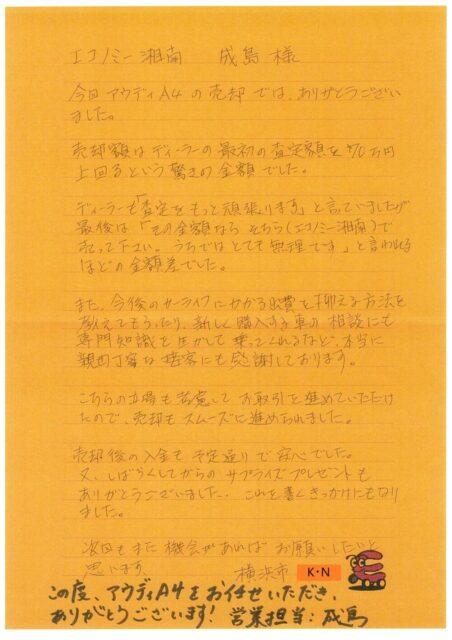 エコノミー湘南　成島 様
今回 アウディA4の売却では、ありがとうござい
ました。
売却額はディーラーの最初の査定額を70万円
上回るという驚きの金額でした。
ディーラーも「査定をもっと頑張ります」と言ていましたが
最後は「その金額なら そちら(エコノミー湘南)で
売って下さい。うちではとても無理です」と言われる
ほどの金額差でした。
また、今後のカーライフにかかる出費を抑える方法を
教えてもらったり、新しく購入する車の相談にも
専門知識を生かして乗ってくれるなど、本当に
親切丁寧な接客にも感謝しております。
こちらの立場も考慮して お取引を進めていただけ
たので、売却もスムーズに進められました。
売却後の入金も予定通りで安心でした。
又、しばらくしてからの サプライズプレゼントも
ありがとうございました。これを書くきっかけにもなり
ました。
次回もまた機会があれば お願いしたいと
思います。 横浜市 K・N
この度、アウディA4をお任せいただき、
ありがとうございます! 営業担当:成島